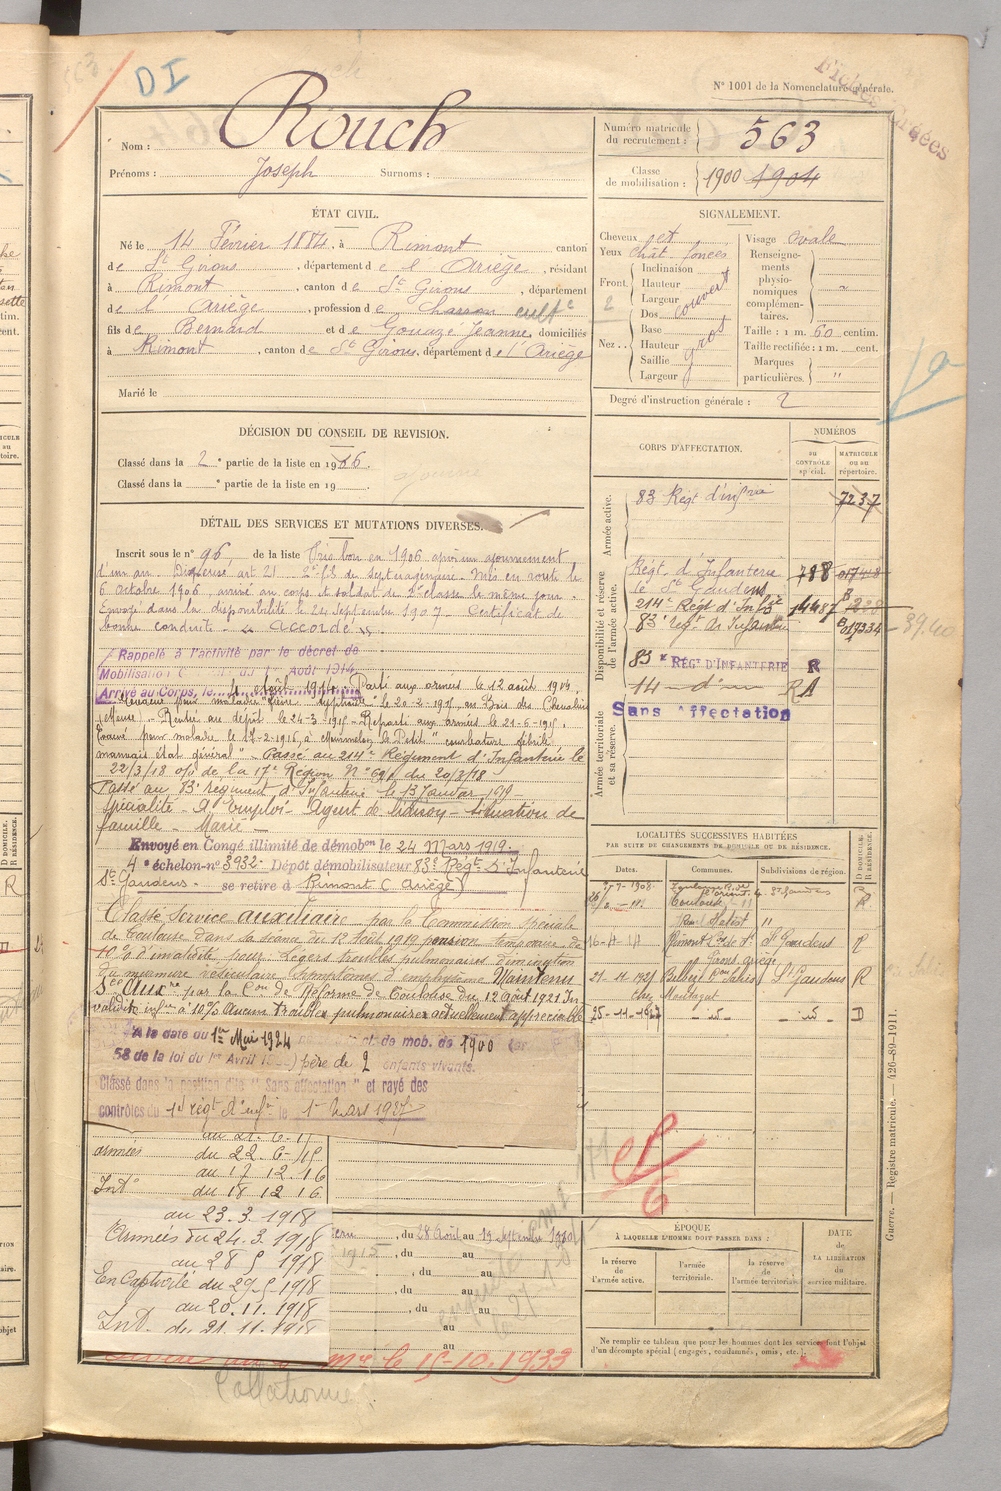 DI
N° 1001 de la Nomenclature générale.
Nom : Rouch
Prénoms : Joseph Surnoms :
Numéro matricule du recrutement : 563
Classe de mobilisation : 1900 1904
ÉTAT CIVIL.
Né le 14 Février 1884, à Rimont canton
de St Girons, département de l'Ariège, résidant
à Rimont, canton de St Girons, département
de l'Ariège, profession de charron cultr
fils de Bernard et de Gouazé Jeanne, domiciliés
à Rimont, canton de St Girons, département de l'Ariège
Marié le
SIGNALEMENT.
Cheveux et
Yeux chât. foncés
Front. Inclinaison
Hauteur
Largeur couvert
2
Nez.. Dos
Base
Hauteur gros
Saillie
Largeur
Visage ovale
Renseignements physionomiques complémentaires. "
Taille : 1 m. 60 centim.
Taille rectifiée : 1 m. cent.
Marques particulières. "
Degré d'instruction générale : 2
DÉCISION DU CONSEIL DE REVISION.
Classé dans la 2e partie de la liste en 1906.
Classé dans la e partie de la liste en 19
DÉTAIL DES SERVICES ET MUTATIONS DIVERSES.
Inscrit sous le n° 96 de la liste Pris bon en 1906 après un ajournement
d'un an. Dispensé art 21 2e fils de septuagénaire. Mis en route le
6 octobre 1906, arrivé au corps et soldat de 2e classe le même jour.
Envoyé dans la disponibilité le 24 Septembre 1907. Certificat de
bonne conduite "accordé".
Rappelé à l'activité par le décret de
Mobilisation du 1er Août 1914
Arrivé au Corps, le Août 1914. Parti aux armées le 12 août 1914.
Evacué pour maladie "fièvre typhoïde" le 20-2-1915, au Bois des Chevaliers
Meuse. Rentré au dépôt le 24-3-1915. Reparti aux armées le 21-6-1915.
Evacué pour maladie le 17-2-1916, à Mourmelon le Petit "courbature fébrile
mauvais état général". Passé au 214e Régiment d'Infanterie le
22/3/18 o/s de la 17e Région N° 691 du 20/3/18
Passé au 83e régiment d'Infanterie le 13 Janvier 1919
Spécialité - A Emploi - Agent de liaison - Situation de
famille - Marié -
Envoyé en Congé illimité de démobon le 24 Mars 1919.
4e échelon-n° 3932- Dépôt démobilisateur 83e Régt d'Infanterie
St Gaudens. se retire à Rimont (Ariège)
Classé Service auxiliaire par la Commission spéciale
de Toulouse dans la séance du 12 Août 1919 pension temporaire de
10% d'invalidité pour Légers troubles pulmonaires diminution
du murmure vésiculaire symptômes d'emphysème Maintenu
Sce Auxre par la Con de Réforme de Toulouse du 12 août 1921 In
validité infre à 10% Aucun trouble pulmonaire actuellement appréciable
A la date du 1er Mai 1924 cl. de mob. de 1900
58 de la loi du 1er Avril père de 2 enfants vivants.
Classé dans la position dite "Sans affectation" et rayé des
contrôles du régt d'infie le 1er Mars 1927
CORPS D'AFFECTATION. NUMÉROS
au CONTRÔLE spécial. MATRICULE ou au répertoire.
Armée active.
83 Régt d'infrie 7237
Disponibilité et réserve de l'armée active.
Régt d'Infanterie 788 01748
de St Gaudens
214e Régt d'Infie 14487
83e régt de Infanterie B 017334 - 39.40
83e RÉGT D'INFANTERIE R
14 - do - RA
Sans Affectation
Armée territoriale et sa réserve.
LOCALITÉS SUCCESSIVES HABITÉES
PAR SUITE DE CHANGEMENTS DE DOMICILE OU DE RÉSIDENCE.
Dates. Communes. Subdivisions de région. D DOMICILE. R RÉSIDENCE.
7-7-1908 Toulouse St Gaudens R
Toulouse R
Rimont St Gaudens R
Girons ariège
21-11-1921 St Gaudens R
chez Montagut
25-11-1927 - do - - do - D
au 21. 6. 15
armées du 22. 6. 15
au 17 12 16
Intr du 18 12 16
au 23. 3. 1918
Armées du 24. 3. 1918
au 28 5 1918
En Captivité du 29. 5. 1918
au 20. 11. 1918
Int. du 21. 11. 1918
, du 28 Août au 19 Septembre 1910
, du au
, du au
, du au
, du au
au
au
ÉPOQUE
À LAQUELLE L'HOMME DOIT PASSER DANS :
la réserve de l'armée active. l'armée territoriale. la réserve de l'armée territoriale.
DATE de LA LIBÉRATION du service militaire.
Ne remplir ce tableau que pour les hommes dont les services font l'objet
d'un décompte spécial (engagés, condamnés, omis, etc.).
le 15-10.1933
Collationné
Guerre. — Registre matricule. — 426-89-1911.